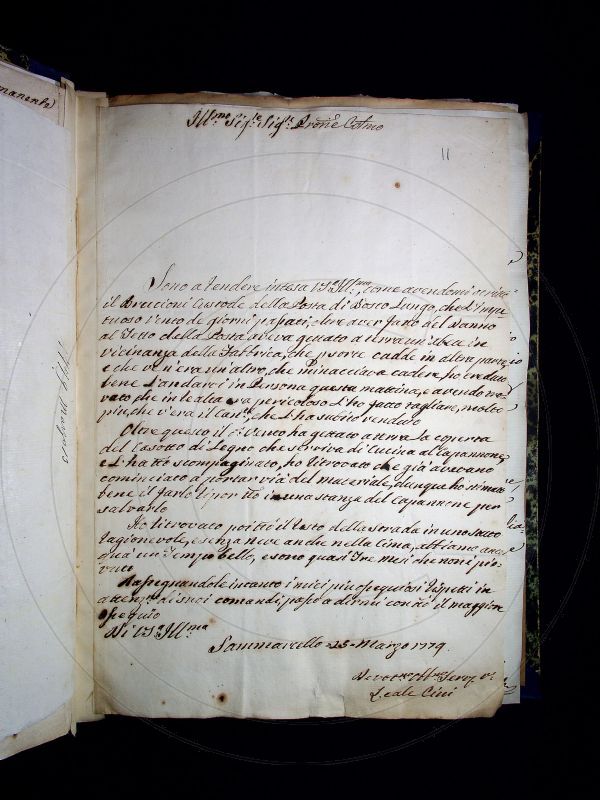 manente
Ill.mo Sig.re Sig.re Pron.e Colmo
11
Sono a rendere intesa V.S. Ill.ma, come avendomi
il Bruccioni Custode della Posta di Bosco Lungo, che l'impe
tuoso Vento de giorni passati, oltre aver fatto del Danno
al Tetto della Posta aveva gettato a terra un
vicinanza della Fabbrica, che p sorte cadde in altra parte
e che ve n'era un altro, che minacciava cadere, ho creduto
bene d'andarvi in Persona questa mattina, e avendo tro
vato che in realtà era pericoloso l'ho fatto tagliare, molto
più, che v'era il che l'ha subito
Oltre questo il d.o Vento ha gettato a terra la coperta
del Casotto di Legno che serviva di Cucina al Capannone
e l'ha tto scompaginato, ho ritrovato che già avevano
cominciato a portar via del materiale, dunque ho stimato
bene il farlo riporre in una stanza del Capannone per
salvarlo
Ho ritrovato poi il resto della strada in uno stato
ragionevole, e senza neve anche nella Cima, abbiamo anco
quà un Tempo bello, e sono quasi Tre mesi che non è pio
vuto
Rassegnandole intanto i miei più ossequiosi rispetti in
de suoi comandi, passo a dirmi con il maggiore
Ossequio
Di V.S. Ill.ma
Sammarcello 25 Marzo 1779.
Devot.mo Obb.mo Serv.re
Leale Cini